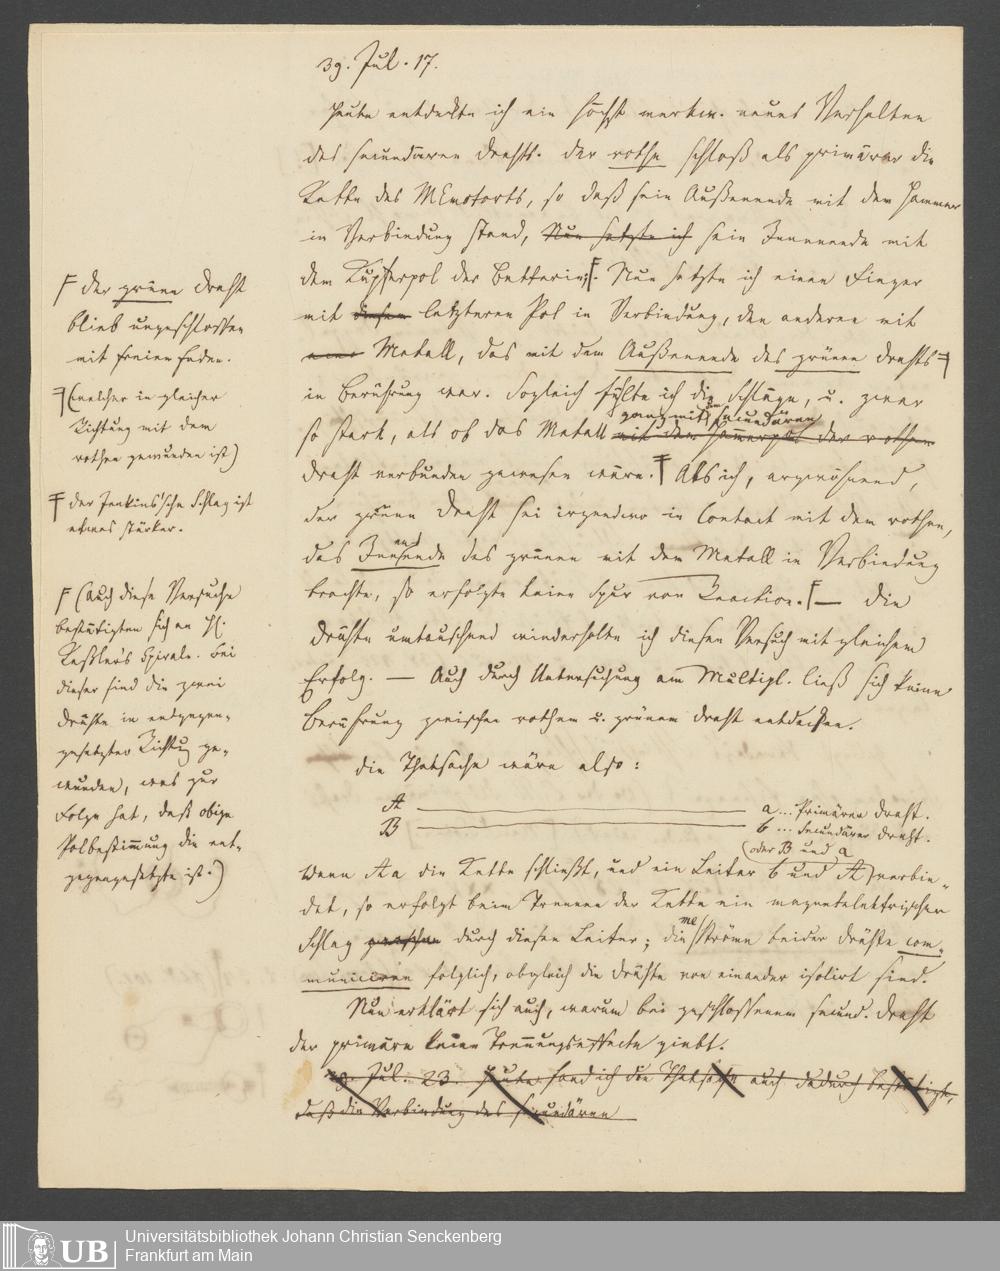 39. Jul. 17.
Heute entdeckte ich ein höchst merkw. neues Verhalten
des secundären Drahts. Der rothe schloß als primärer die
Kette des MEmotorts, so daß sein Außenende mit dem Hammer
in Verbindung stand, Nun setzte ich sein Innenende mit
dem Kupferpol der Batterie; Nun setzte ich einen Finger
mit diesem letzteren Pol in Verbindung, den anderen mit
Metall, das mit dem Außenende des grünen Drahts
in Berührung war. Sogleich fühlte ich die Schläge, u. zwar
ganz mit dem secundären
so stark, als ob das Metall mit dem Hammerpol der rothen
Draht verbunden gewesen wäre. Als ich, argwöhnend,
der grüne Draht sei irgendwo in Contact mit dem rothen,
das Innenende des grünen mit dem Metall in Verbindung
brachte, so erfolgte keine Spur von Reaction. — Die
Drähte umtauschend wiederholte ich diesen Versuch mit gleichem
Erfolg. — Auch durch Untersuchung am Multipl. ließ sich keine
Berührung zwischen rothem u. grünem Draht entdecken.
Die Thatsache wäre also:
A a ... Primärer Draht.
B b ... Secundärer Draht.
(oder B und a)
Wenn A a die Kette schließt, und ein Leiter b und A verbin-
det, so erfolgt beim Trennen der Kette ein magnetelektrischer
Schlag zwischen durch diesen Leiter; die Ströme beider Drähte com-
municiren folglich, obgleich die Drähte von einander isolirt sind.
Nun erklärt sich auch, warum bei geschlossenem secund. Draht
der primäre keine Trennungseffecte giebt.
39. Jul. 23. Heute fand ich die Thatsache auch dadurch bestätigt,
daß die Verbindung des secundären
der grüne Draht
blieb ungeschlossen
mit freien Enden.
(welcher in gleicher
Richtung mit dem
rothen gewunden ist)
der Jenkins'sche Schlag ist
etwas stärker.
(Auch diese Versuche
bestätigten sich an H.
Keßler's Spirale. Bei
dieser sind die zwei
Drähte in entgegen-
gesetzter Richtung ge-
wunden, was zur
Folge hat, daß obige
Polbestimmung die ent-
gegengesetzte ist.)
UB
Universitätsbibliothek Johann Christian Senckenberg
Frankfurt am Main